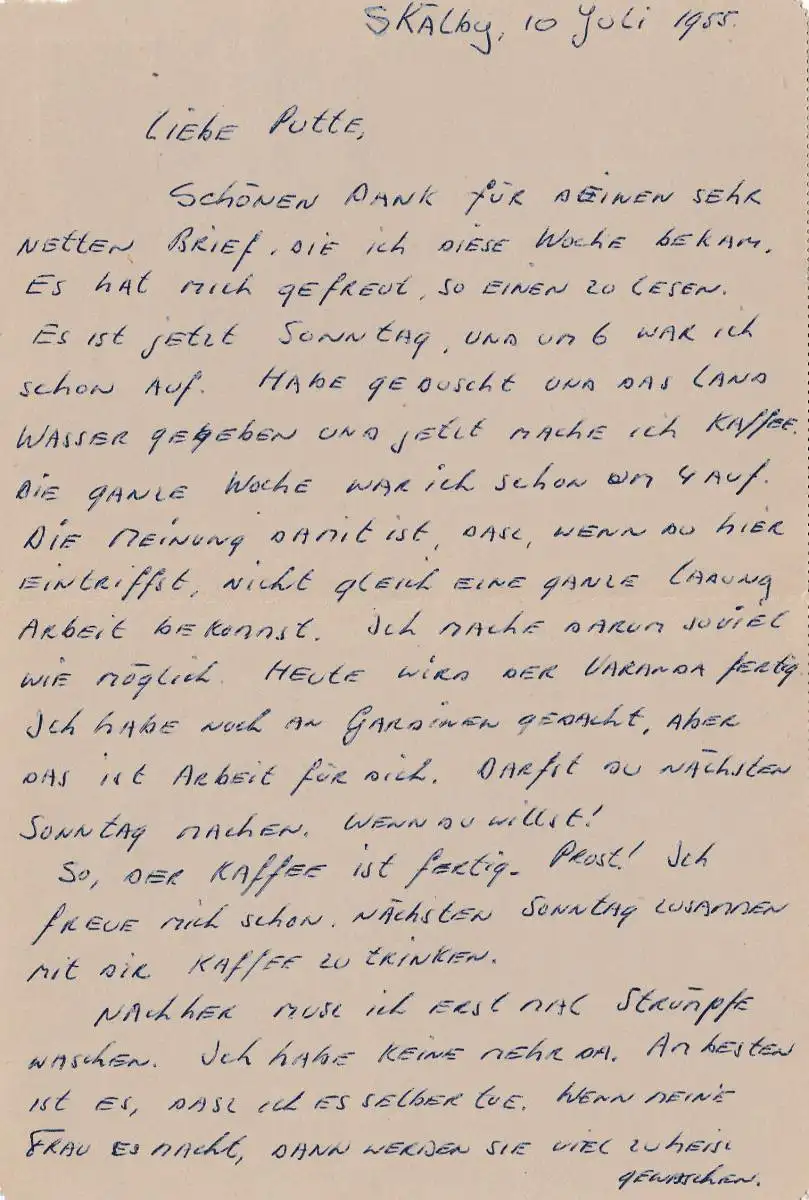 Skälby, 10 Juli 1955.
Liebe Putte,
Schönen Dank für Deinen sehr
netten Brief, die ich diese Woche bekam.
Es hat mich gefreut, so einen zu lesen.
Es ist jetzt Sonntag, und um 6 war ich
schon auf. Habe geduscht und das Land
Wasser gegeben und jetzt mache ich Kaffee.
Die ganze Woche war ich schon um 4 auf.
Die Meinung damit ist, dasz, wenn Du hier
eintriffst, nicht gleich eine ganze Ladung
Arbeit bekommst. Ich mache darum soviel
wie möglich. Heute wird der Varanda fertig.
Ich habe noch an Gardinen gedacht, aber
das ist Arbeit für Dich. Darfst Du nächsten
Sonntag machen. Wenn Du willst!
So, der Kaffee ist fertig. Prost! Ich
freue mich schon, nächsten Sonntag zusammen
mit Dir Kaffee zu trinken.
Nachher musz ich erst mal Strümpfe
waschen. Ich habe keine mehr da. Am besten
ist es, dasz ich es selber tue. Wenn meine
Frau es macht, dann werden sie viel zu heisz
gewaschen.